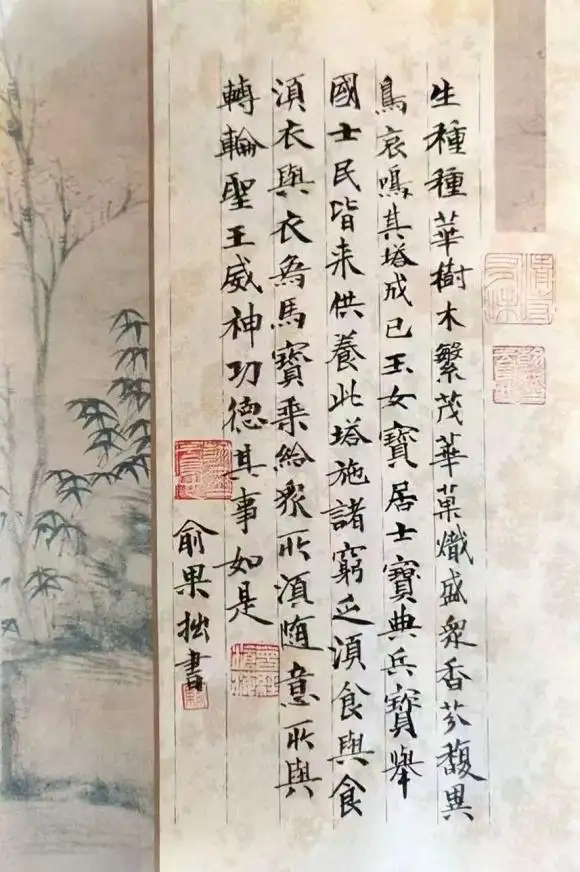 生種種華樹木繁茂華菓熾盛衆香芬馥異
鳥哀鳴其塔成已玉女寶居士寶典兵寶舉
國士民皆来供養此塔施諸窮乏湏食與食
湏衣與衣象馬寶乗給衆所湏隨意所與
轉輪聖王威神功德其事如是
俞果拙書